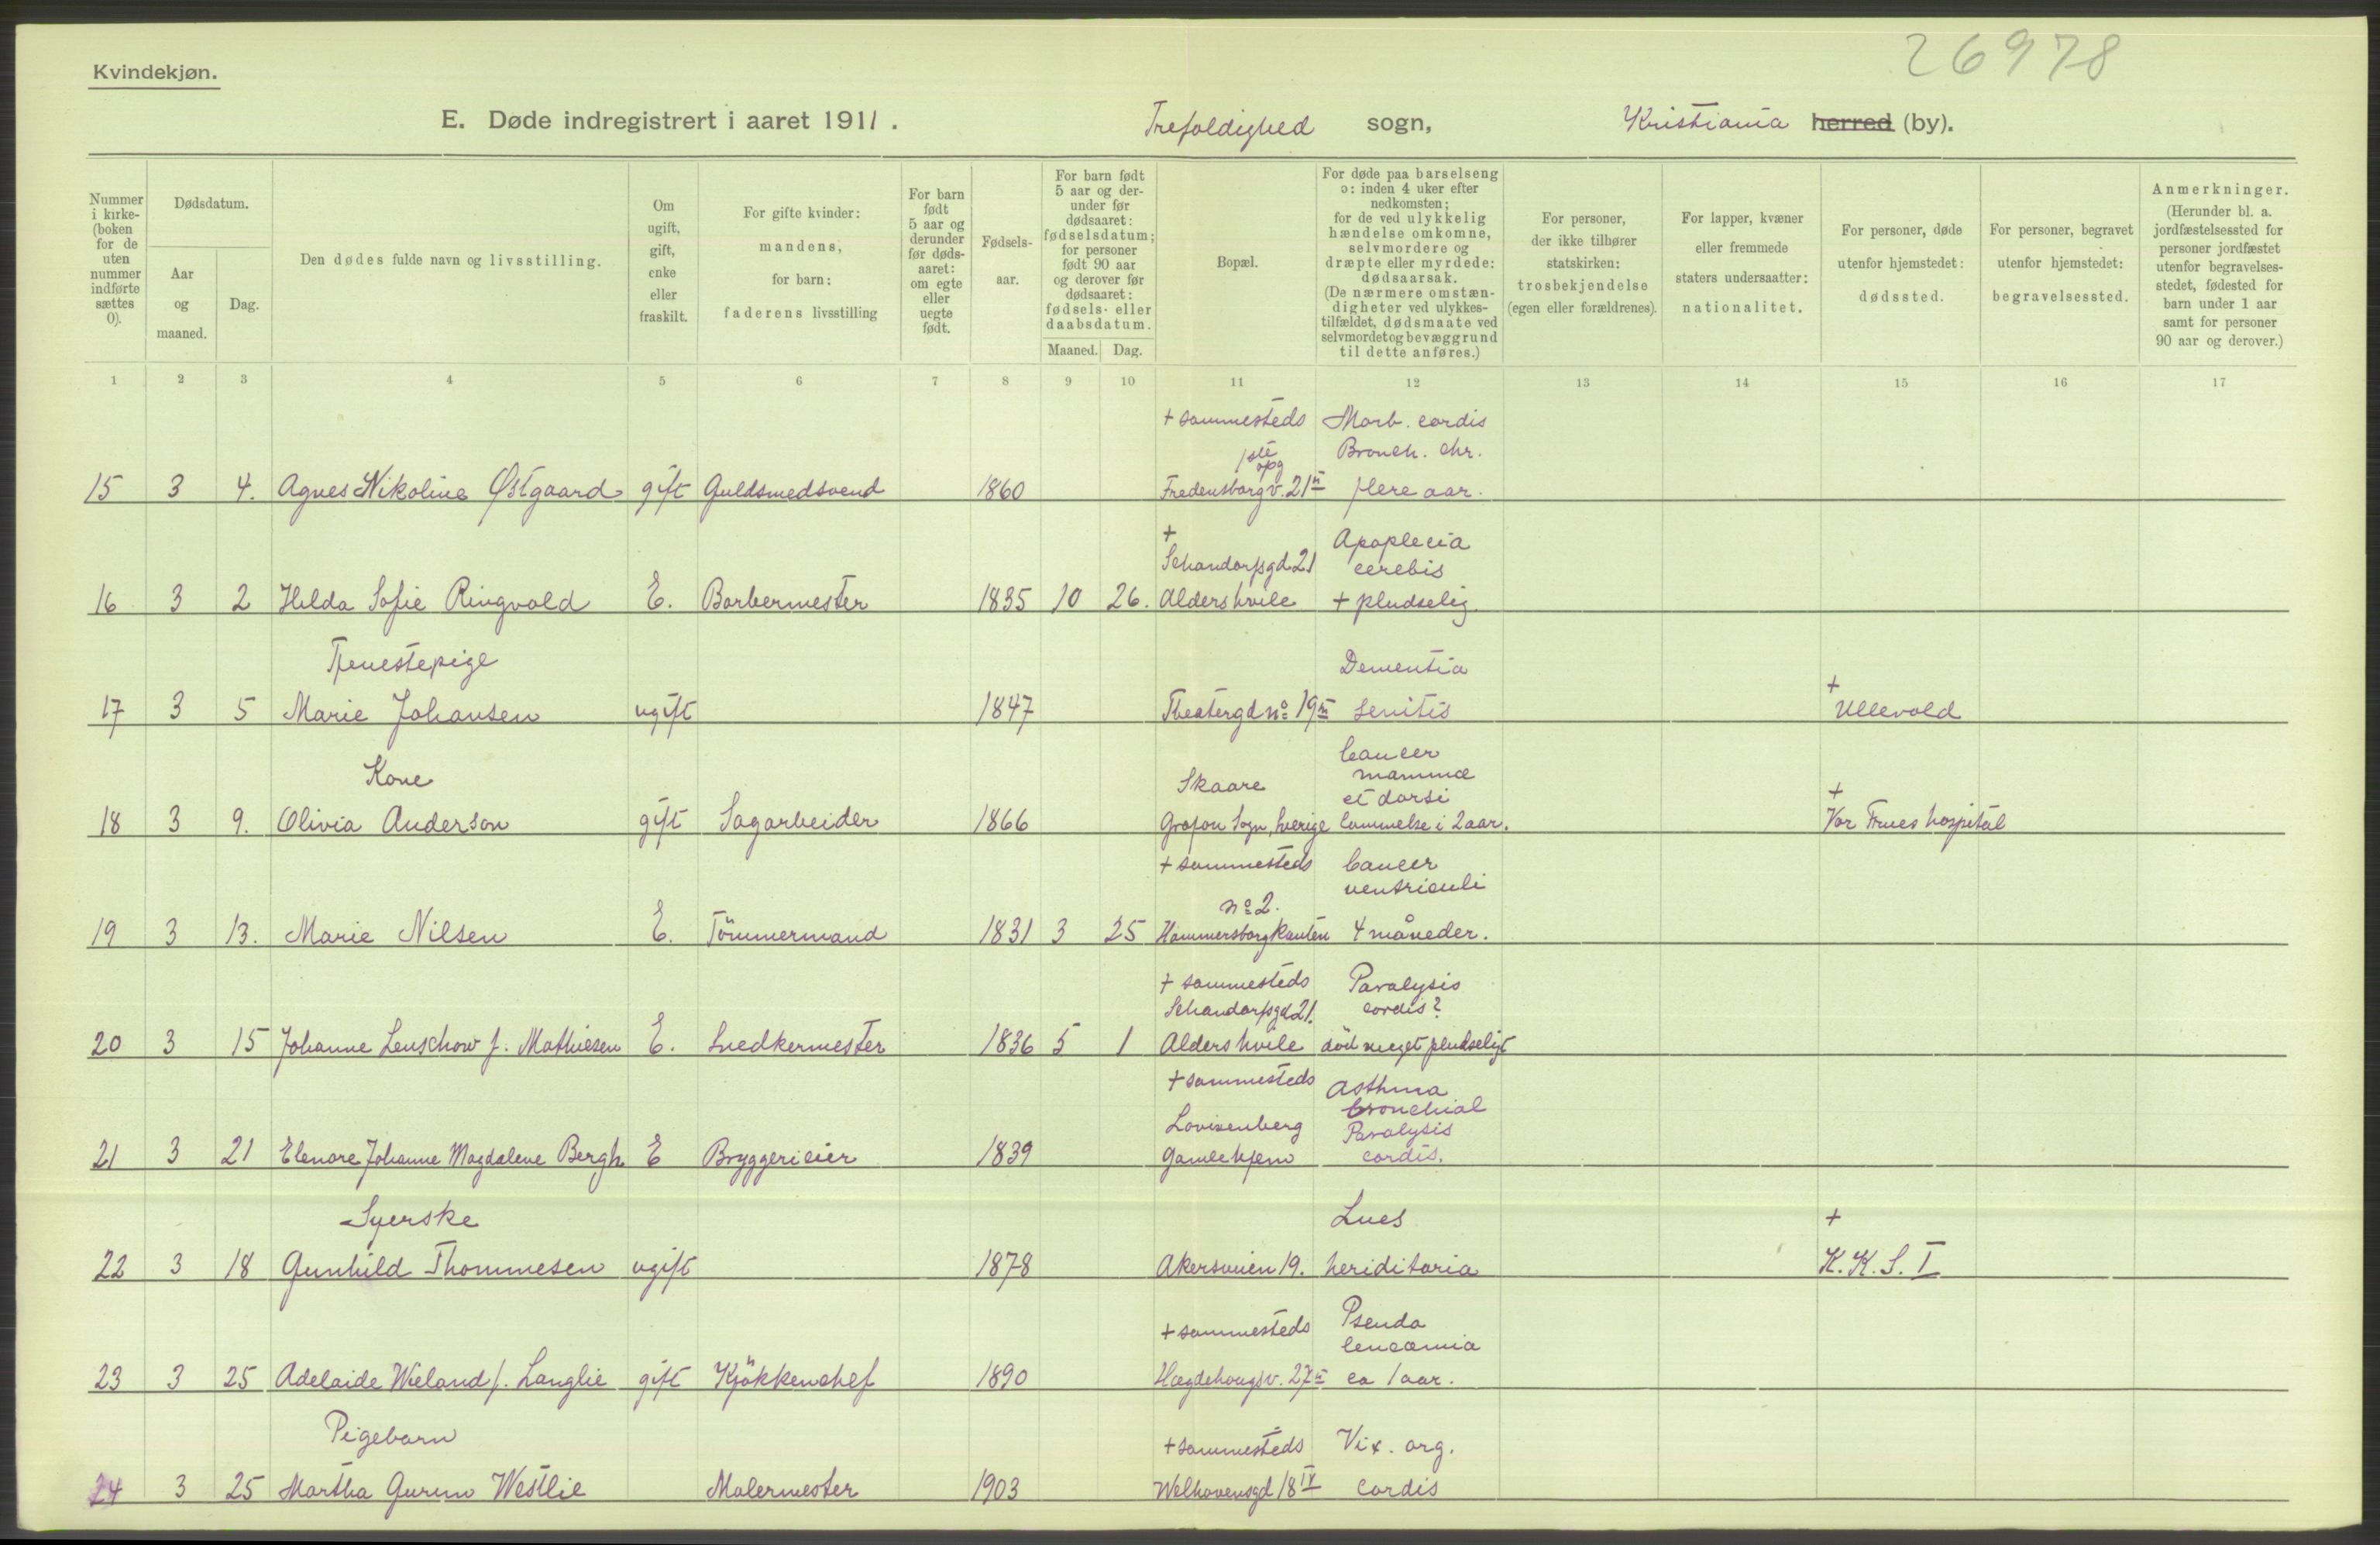 26978
Kvindekjøn.
E. Døde indregistrert i aaret 1911. Trefoldighed sogn, Kristiania herred (by).
Nummer i kirke-(boken for de uten nummer indførte sættes 0).
Dødsdatum.
Aar og maaned.
Dag.
Den dødes fulde navn og livsstilling.
Om ugift, gift, enke eller fraskilt.
For gifte kvinder: mandens, for barn: faderens livsstilling
For barn født 5 aar og derunder før døds-aaret: om egte eller uegte født.
Fødsels-aar.
For barn født 5 aar og der-under før dødsaaret: fødselsdatum; for personer født 90 aar og derover før dødsaaret: fødsels- eller daabsdatum.
Maaned. Dag.
Bopæl.
For døde paa barselseng ɔ: inden 4 uker efter nedkomsten; for de ved ulykkelig hændelse omkomne, selvmordere og dræpte eller myrdede: dødsaarsak. (De nærmere omstæn-digheter ved ulykkes-tilfældet, dødsmaate ved selvmord et og bevæggrund til dette anføres.)
For personer, der ikke tilhører statskirken: trosbekjendelse (egen eller forældrenes).
For lapper, kvæner eller fremmede staters undersaatter: nationalitet.
For personer, døde utenfor hjemstedet: dødssted.
For personer, begravet utenfor hjemstedet: begravelsessted.
Anmerkninger. (Herunder bl. a. jordfæstelsessted for personer jordfæstet utenfor begravelses-stedet, fødested for barn under 1 aar samt for personer 90 aar og derover.)
1 2 3 4 5 6 7 8 9 10 11 12 13 14 15 16 17
+ sammesteds Morb. cordis
1ste opg Bronch. chr.
15 3 4. Agnes Nikoline Østgaard gift Guldsmedsvend 1860 Fredensborgv. 21 II flere aar.
+ Apoplecia
Schandorfsgd 21 cerebis
16 3 2 Hilda Sofie Ringvold E. Barbermester 1835 10 26. Aldershvile + pludselig
Tjenestepige Dementia
17 3 5 Marie Johansen ugift 1847 Theatergd nº 19 III senitis + Ullevold
Kone Skaare Cancer mammæ et dorsi
18 3 9. Olivia Anderson gift Sagarbeider 1866 Grafon Sogn, Sverige lammelse i 2 aar. + Vor Frues hospital
+ sammesteds Cancer
nº 2. ventriculi
19 3 13. Marie Nilsen E. Tömmermand 1831 3 25 Hammersborgkanten 4 måneder.
+ sammesteds Paralysis
Schandorfsgd 21. cordis?
20 3 15 Johanne Lenschow f. Mathiesen E. Snedkermester 1836 5 1 Aldershvile död meget pludseligt
+ sammesteds Asthma bronchial
Lovisenberg Paralysis
21 3 21 Elenore Johanne Magdalene Bergh E Bryggerieier 1839 Gamlehjem cordis.
Syerske Lues
22 3 18 Gunhild Thommesen ugift 1878 Akersveien 19. heriditaria + K. K. S. I
+ sammesteds Pseudo leucæmia
23 3 25 Adelaide Wieland f. Langlie gift Kjökkenchef 1890 Hægdehougsv. 27 II ca 1 aar.
Pigebarn + sammesteds Vix. org.
24 3 25 Martha Gurine Westlie Malermester 1903 Welhavensgd 18 IV cordis